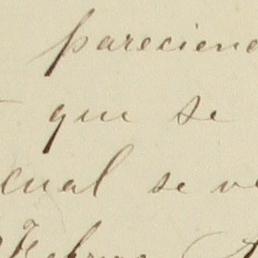 pareciend
que se
cual se ve
Febrero